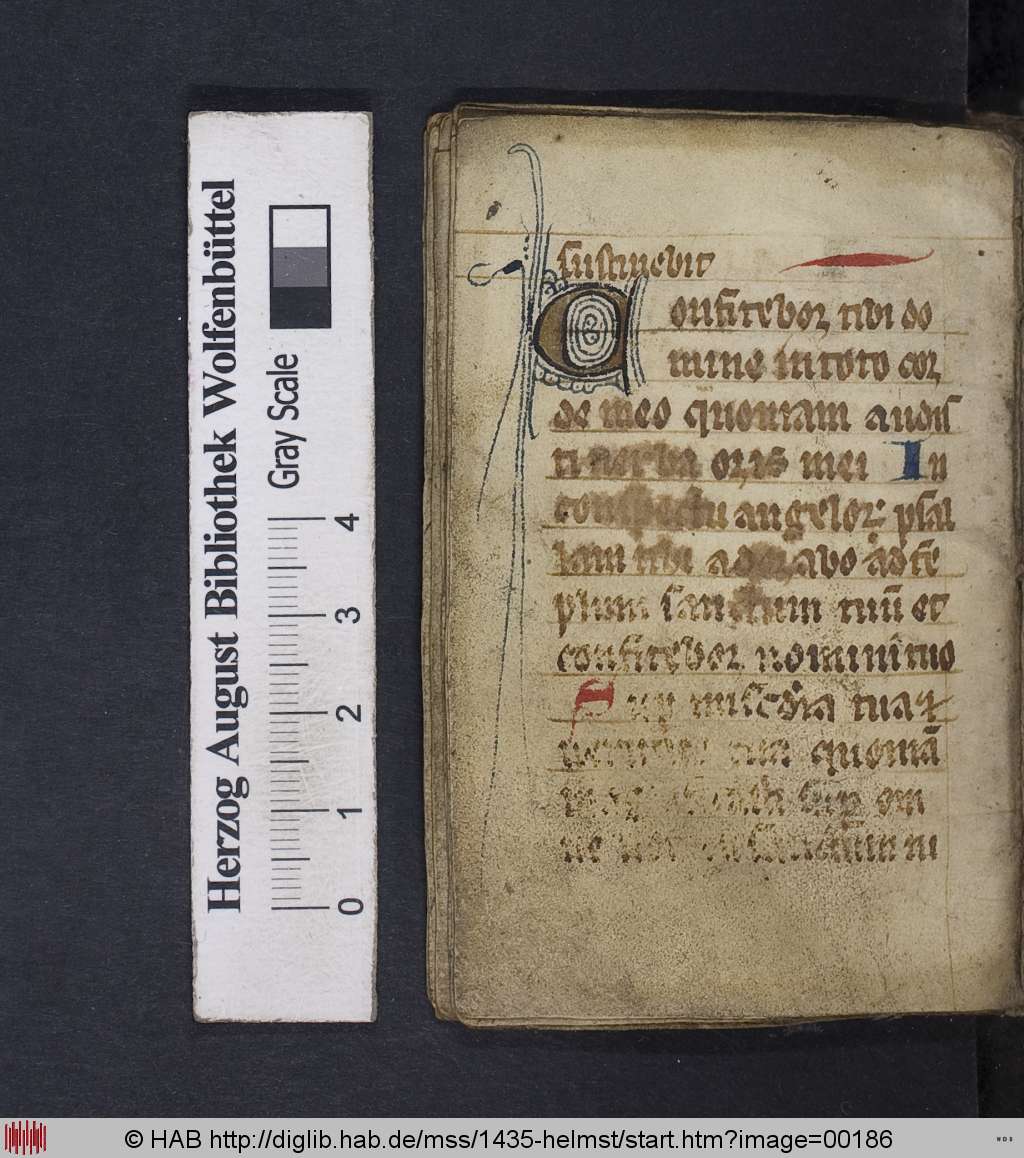 Herzog August Bibliothek Wolfenbüttel
Gray Scale
0 1 2 3 4
sustinebit
Confitebor tibi do
mine in toto cor
de meo quoniam audis
ti verba oris mei In
conspectu angelor psal
lam tibi adorabo ad te
plum sanctum tuū et
confitebor nomini tuo
miscdia tua
tua quoniā
sup om
ne sanctum tu
© HAB http://diglib.hab.de/mss/1435-helmst/start.htm?image=00186